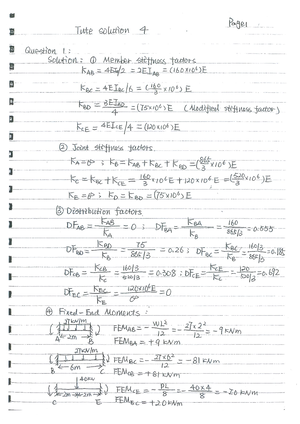 Page1
Tute solution 4
Question 1:
Solution: ① Member stiffness factors.
K_AB = 4EI/2 = 2EI_AB = (160×10⁶)E
K_BC = 4EI_BC/6 = (160/3 ×10⁶)E
K_BD = 3EI_BD/4 = (75×10⁶)E (Modified stiffness factor)
K_CE = 4EI_CE/4 = (120×10⁶)E
② Joint stiffness factors.
K_A = ∞; K_B = K_AB + K_BC + K_BD = (865/3 ×10⁶)E
K_C = K_BC + K_CE = 160/3 ×10⁶E + 120×10⁶E = (520/3 ×10⁶)E
K_E = ∞; K_D = K_BD = (75×10⁶)E
③ Distribution factors.
DF_AB = K_AB/K_A = 0; DF_BA = K_BA/K_B = 160/(865/3) = 0.555
DF_BD = K_BD/K_B = 75/(865/3) = 0.26; DF_BC = K_BC/K_B = (160/3)/(865/3) = 0.185
DF_CB = K_CB/K_C = (160/3)/(520/3) = 0.308; DF_CE = K_CE/K_C = 120/(520/3) = 0.692
DF_EC = K_EC/K_E = 120×10⁶E/∞ = 0
④ Fixed-End Moments:
27kN/m FEM_AB = -WL²/12 = -27×2²/12 = -9 kNm
A 2m B FEM_BA = +9 kNm
27kN/m FEM_BC = -27×6²/12 = -81 kNm
B 6m C FEM_CB = +81 kNm
40kN FEM_CE = -PL/8 = -40×4/8 = -20 kNm
2m 2m
C E FEM_EC = +20 kNm